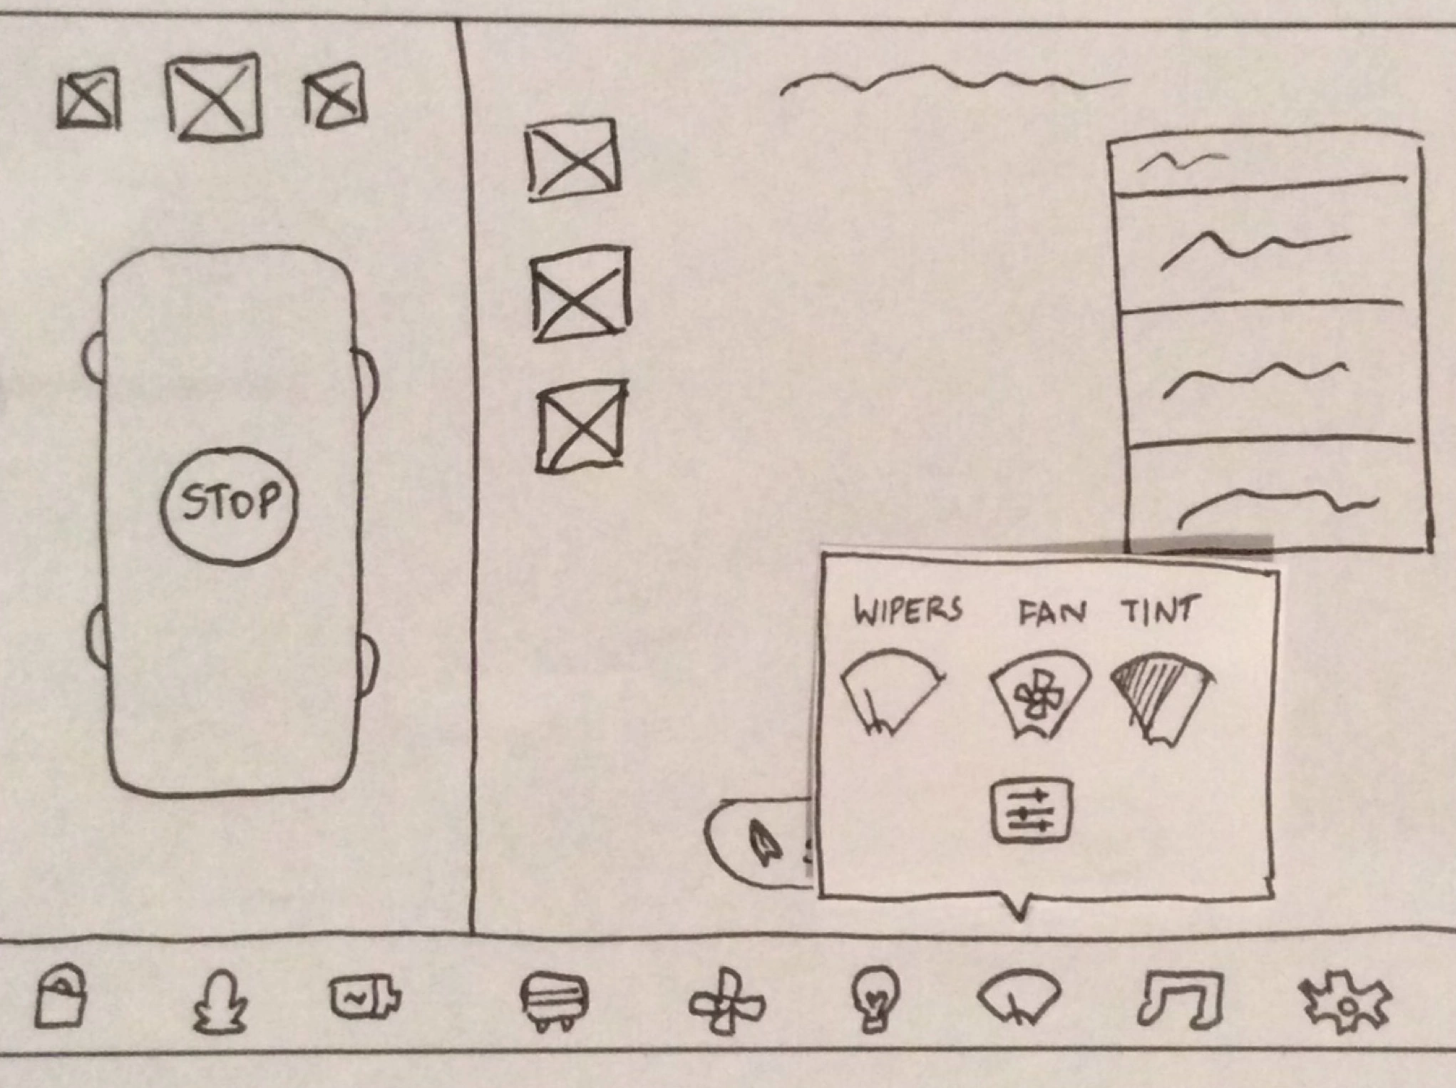 STOP
WIPERS FAN TINT